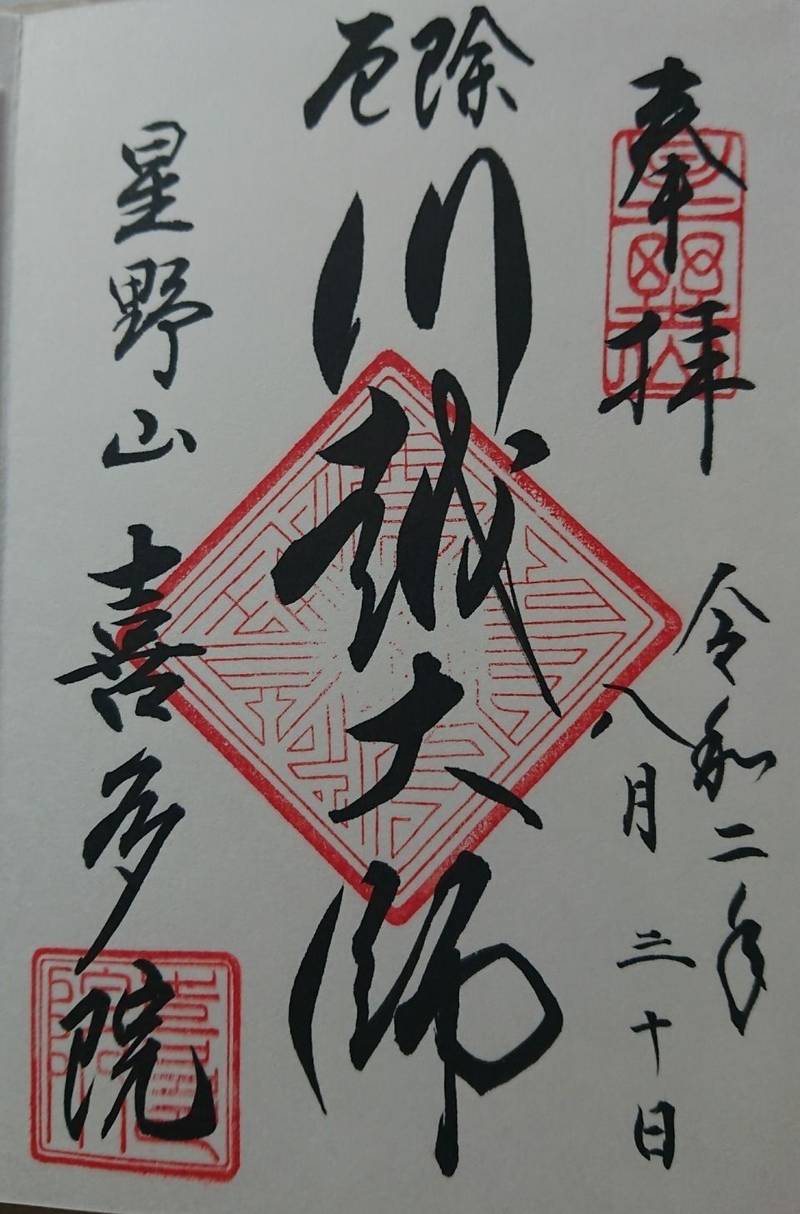 奉拝
令和二年
八月三十日
厄除
川越大師
星野山
喜多院